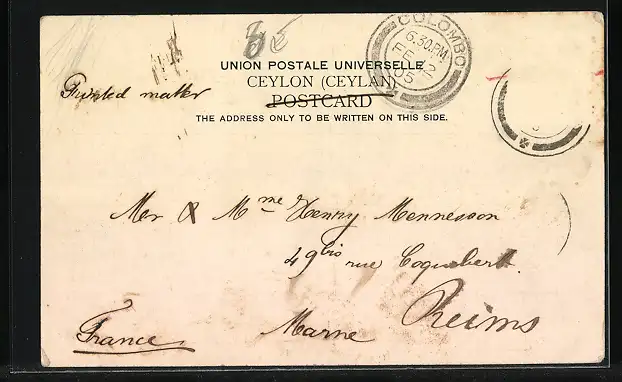 COLOMBO
6.30.PM
FE 12
05
UNION POSTALE UNIVERSELLE
CEYLON (CEYLAN)
POSTCARD
THE ADDRESS ONLY TO BE WRITTEN ON THIS SIDE.
Printed matter
Mer & Mme Henry Mennesson
49bis rue Coquebert.
Reims
Marne
France